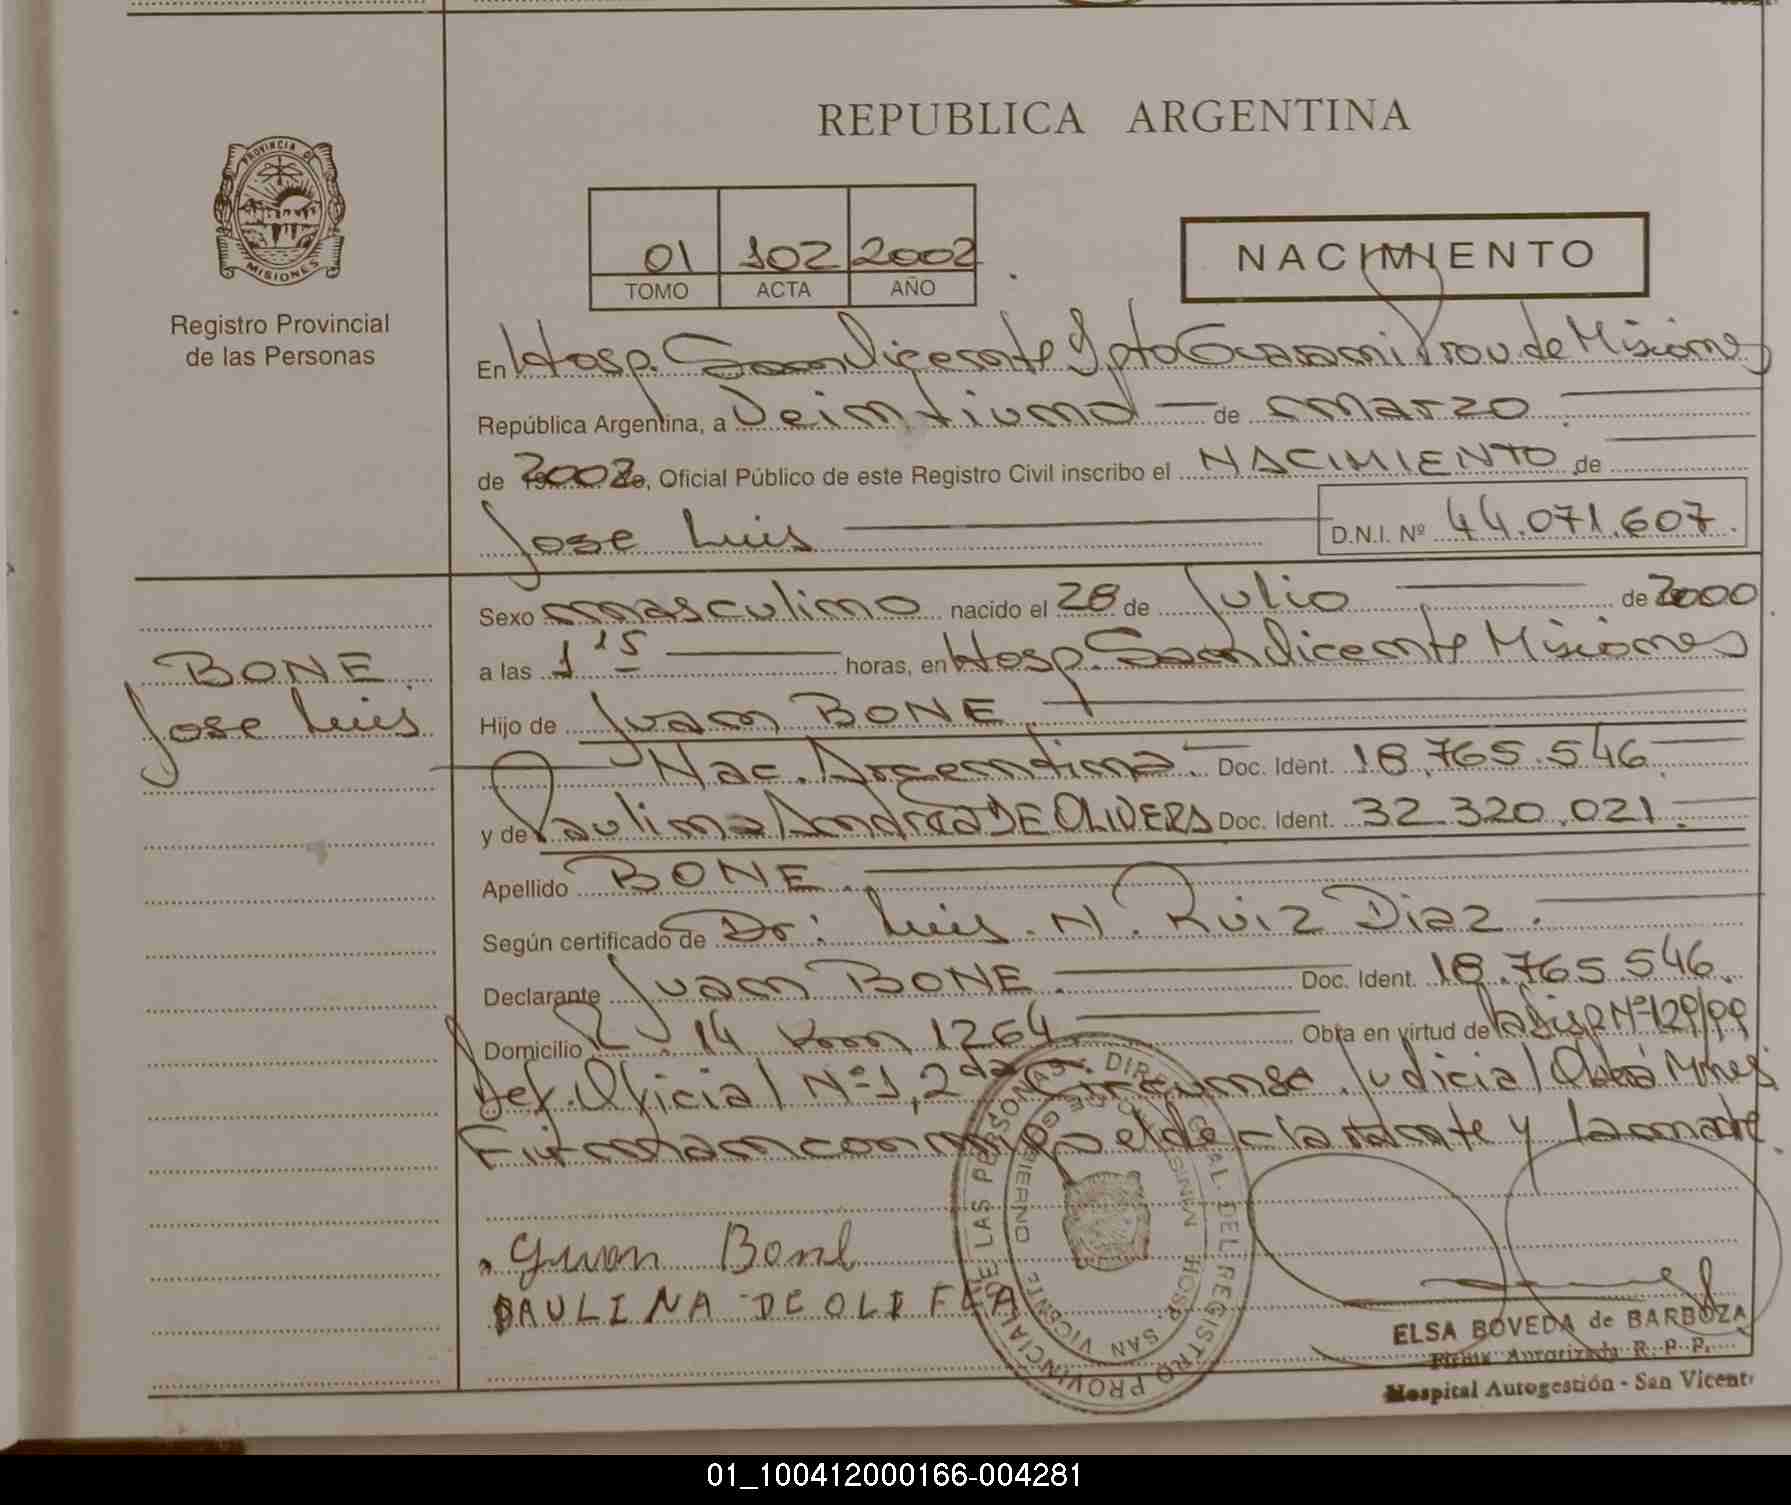 REPUBLICA ARGENTINA
PROVINCIA DE
MISIONES
Registro Provincial
de las Personas
01 102 2002
TOMO ACTA AÑO
NACIMIENTO
En Hosp. San Vicente Dpto Guarani Prov. de Misiones
República Argentina, a Veintiuno de marzo
de 2002, Oficial Público de este Registro Civil inscribo el NACIMIENTO de
Jose Luis D.N.I. Nº 44.071.607.
Sexo masculino nacido el 28 de Julio de 2000
a las 1 15 horas, en Hosp. San Vicente Misiones
BONE
Jose Luis
Hijo de Juan BONE
Nac. Argentina. Doc. Ident. 18.765.546
y de Paulina Andrea DE OLIVERA Doc. Ident. 32.320.021.
Apellido BONE
Según certificado de Dr: Luis. N. Ruiz Diaz.
Declarante Juan BONE. Doc. Ident. 18.765.546.
Domicilio R. 14 Km 1264 Obra en virtud de Nº 129/99
Def. Oficial Nº 1, 2da Circunsc. Judicial Oberá Mnes
Firman conmigo el declarante y la madre.
Juan Bone
PAULINA DE OLI
DIRECCION GENERAL DEL REGISTRO PROVINCIAL DE LAS PERSONAS
GOBIERNO
HOSP. SAN VICENTE
ELSA BOVEDA de BARBOZA
Firma Autorizada R. P. P.
Hospital Autogestión - San Vicent
01_100412000166-004281